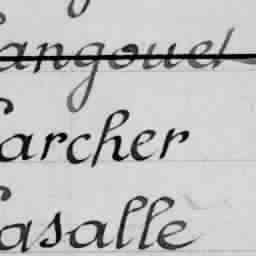 angouet
archer
asalle